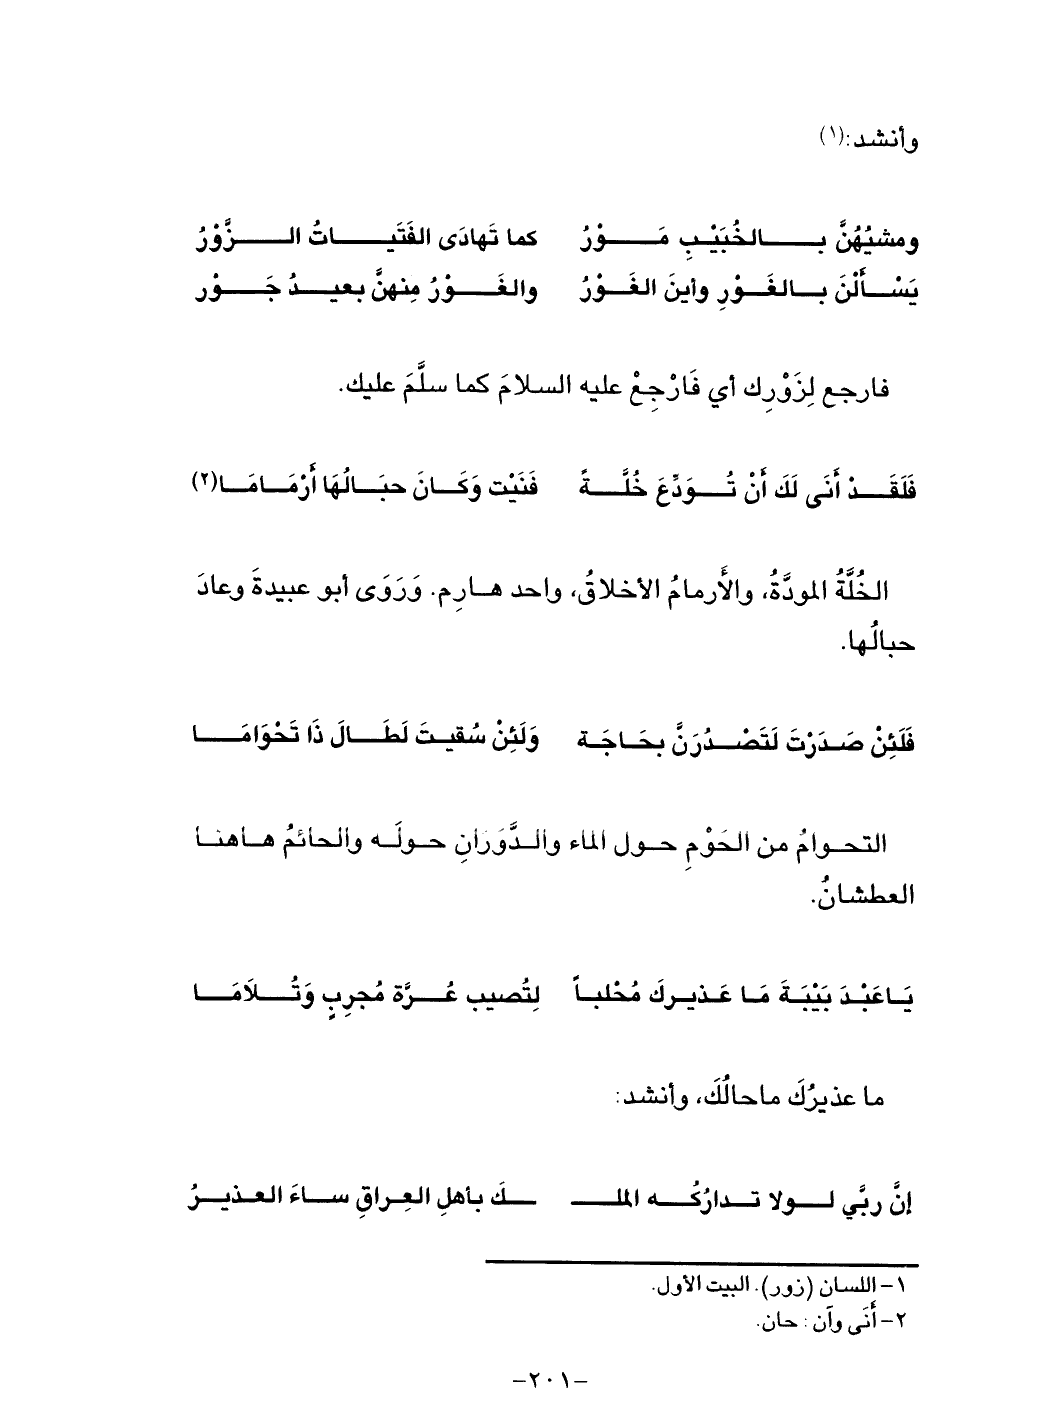 وأنشد:(١)
ومشيُهُنَّ بالخُبَيْبِ مَوْرُ كما تَهادَى الفَتَيَاتُ الزَّوْرُ
يَسْأَلْنَ بالغَوْرِ وأينَ الغَوْرُ والغَوْرُ مِنهنَّ بعيدُ جَوْر
فارجع لِزَوْرِك أي فَارْجِعْ عليه السلامَ كما سلَّمَ عليك.
فَلَقَدْ أَنَى لَكَ أَنْ تُوَدِّعَ خُلَّةً فَنَيْت وَكَانَ حبَالُهَا أَرْمَامَا(٢)
الخُلَّةُ المودَّةُ، والأَرمامُ الأخلاقُ، واحد هارِم. وَرَوَى أبو عبيدةَ وعادَ
حبالُها.
فَلَئِنْ صَدَرْتَ لَتَصْدُرَنَّ بحَاجَة وَلَئِنْ سُقيتَ لَطَالَ ذَا تَحْوَامَا
التحوامُ من الحَوْمِ حول الماء والدَّوَرَانِ حولَه والحائمُ هاهنا
العطشانُ.
يَاعَبْدَ بَيْبَةَ مَا عَذيركَ مُحْلباً لِتُصيب عُرَّة مُجرِبٍ وَتُلَامَا
ما عذيرُكَ ماحالُكَ، وأنشد:
إنَّ ربَّي لولا تدارُكُه الملـ ـكَ بأهلِ العِراقِ ساءَ العذيرُ
١- اللسان (زور). البيت الأول.
٢- أَنَى وآن : حان.
-٢٠١-